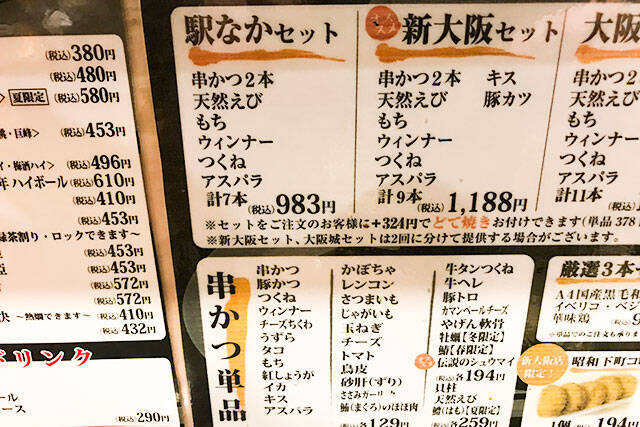 (税込)380円
(税込)480円
夏限定 (税込)580円
桃・巨峰>
(税込)453円
イ・梅酒ハイ> (税込)496円
年 ハイボール (税込)610円
(税込)410円
(税込)453円
緑茶割り・ロックできます~
(税込)453円
(税込)453円
(税込)572円
(税込)572円
~熱燗できます~ (税込)410円
(税込)432円
ドリンク
ール
ース
(税込)290円
駅なかセット
串かつ2本
天然えび
もち
ウィンナー
つくね
アスパラ
計7本 (税込)983円
新大阪セット
串かつ2本 キス
天然えび 豚カツ
もち
ウィンナー
つくね
アスパラ
計9本 (税込)1,188円
大阪
串かつ2
天然えび
もち
ウィンナ
つくね
アスパラ
計11本
※セットをご注文のお客様に+324円でどて焼きお付けできます(単品 378
※新大阪セット、大阪城セットは2回に分けて提供する場合がございます。
串かつ単品
串かつ
豚かつ
つくね
ウィンナー
チーズちくわ
うずら
タコ
もち
紅しょうが
イカ
キス
アスパラ
かぼちゃ
レンコン
さつまいも
じゃがいも
玉ねぎ
チーズ
トマト
鳥皮
砂肝(ずり)
ささみガーリック
鮪(まぐろ)のほほ肉
(税込)各129円
牛タンつくね
牛ヘレ
豚トロ
カマンベールチーズ
やげん軟骨
牡蠣【冬限定】
鮪【春限定】
伝説のシュウマイ
(税込)各194円
貝柱
天然えび
鱧(はも)【夏限定】
(税込)各259円
厳選3本
A4国産黒毛和
イベリコ・ベジ
華味鶏
※単品でのご注文も承りま
新大阪店
限定!
昭和 下町コ
1個 (税込)194円